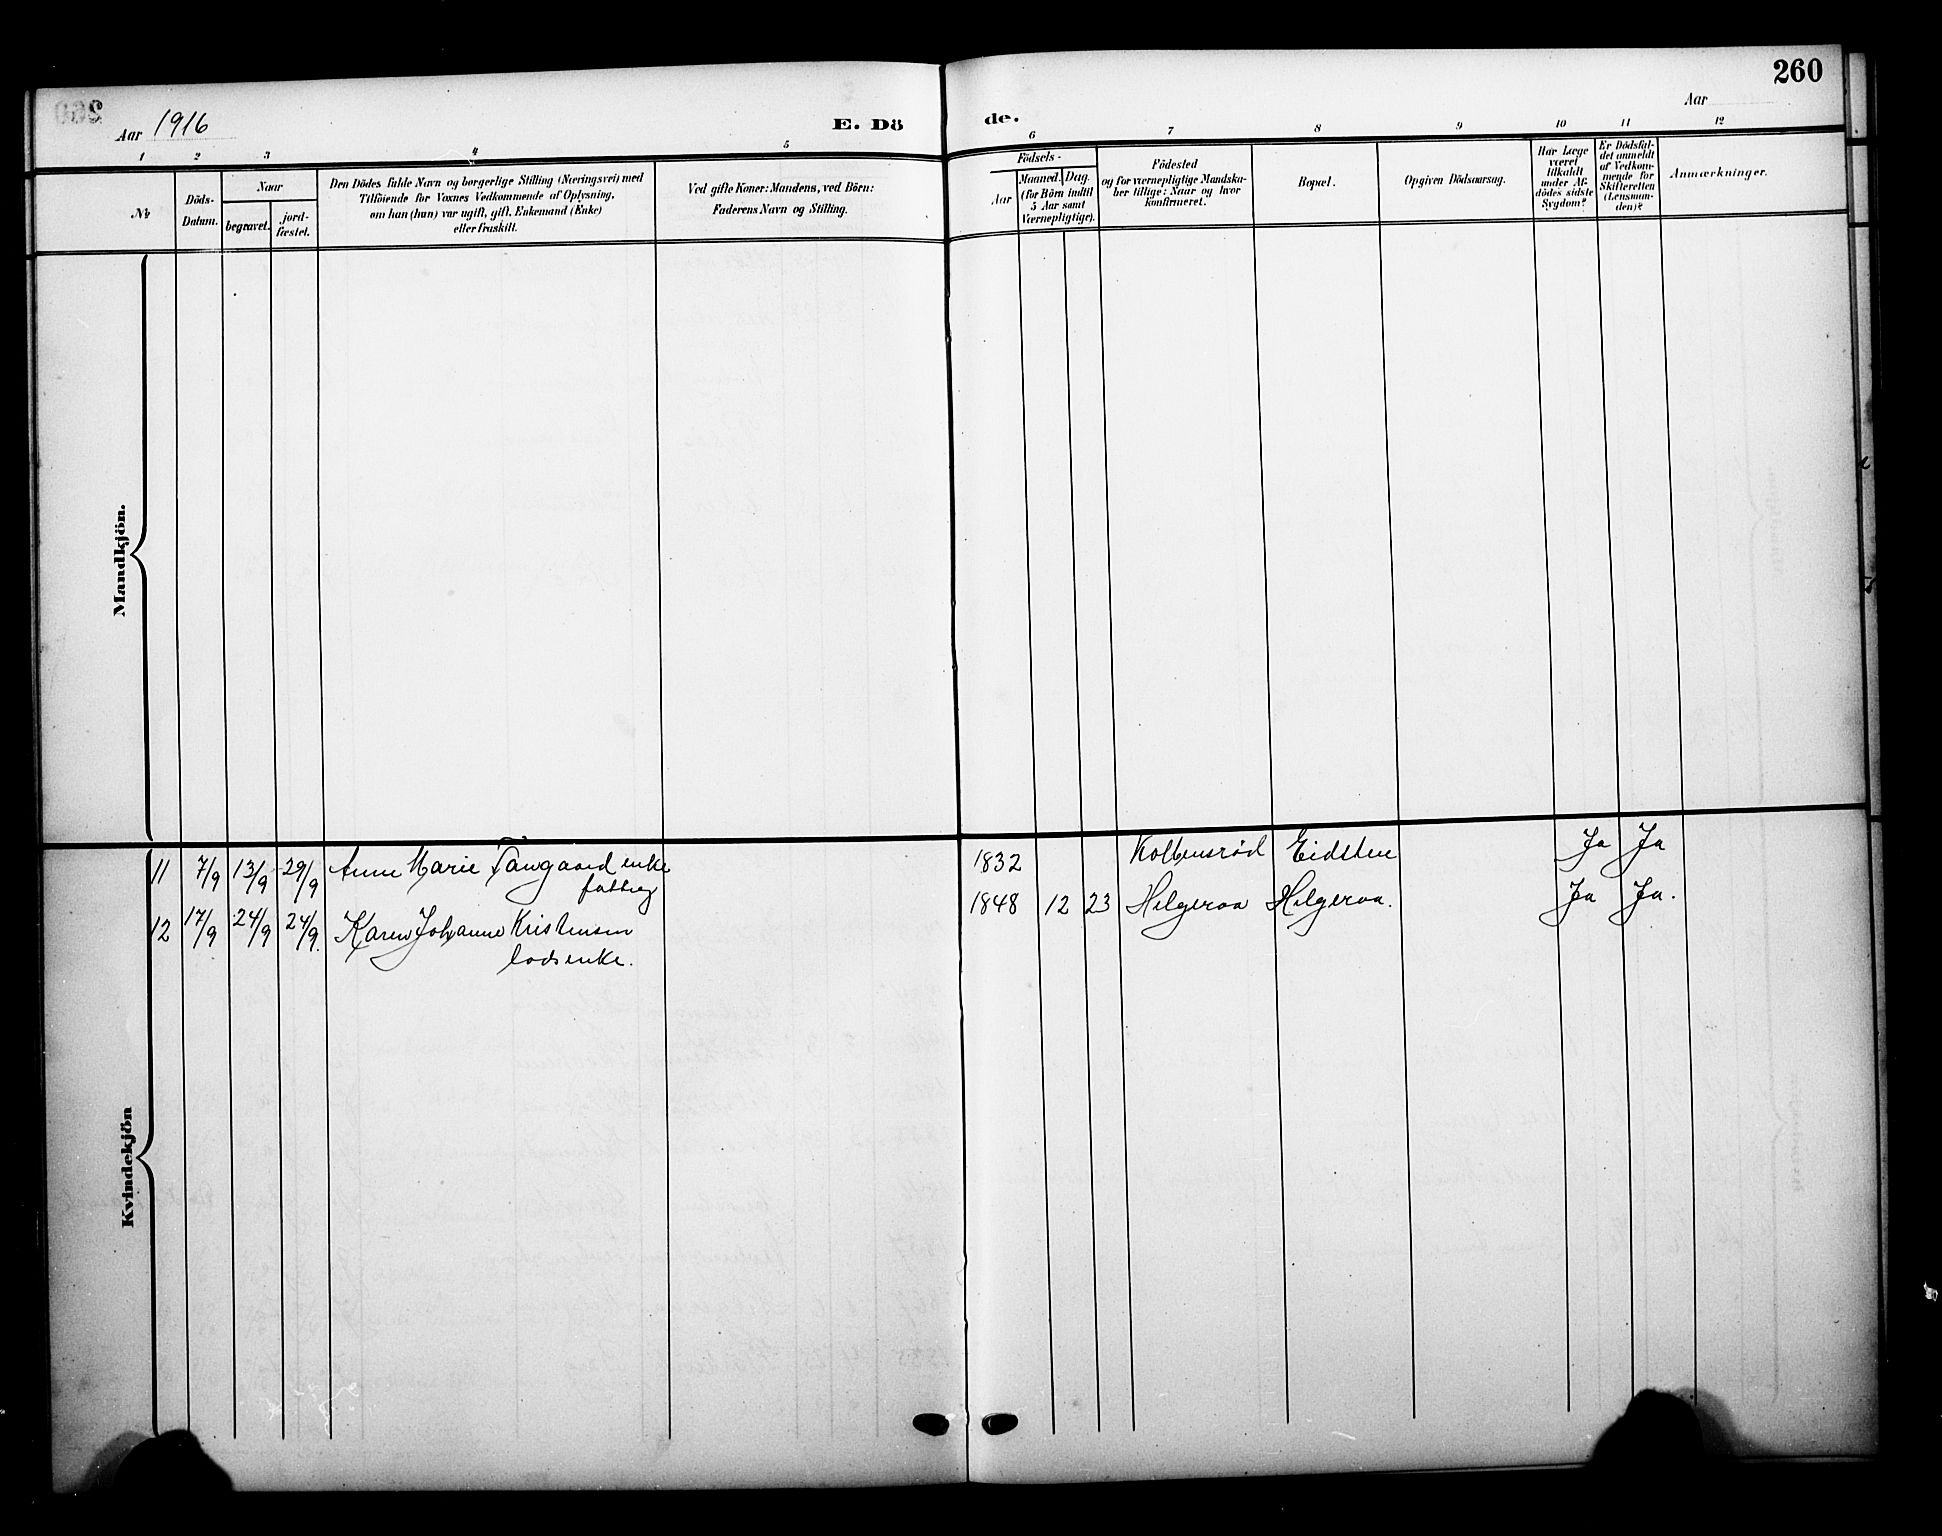 260
Aar 1916
E. Dö de.
Aar
1 2 3 4 5 6 7 8 9 10 11 12
Nr
Döds-
Datum.
Naar
begravet.
jord-
fæstet.
Den Dödes fulde Navn og borgerlige Stilling (Næringsvei) med
Tilföiende for Voxnes Vedkommende af Oplysning,
om han (hun) var ugift, gift, Enkemand (Enke)
eller fraskilt.
Ved gifte Koner: Mandens, ved Börn:
Faderens Navn og Stilling.
Födsels-
Aar
Maaned. Dag.
(for Börn indtil
5 Aar samt
Værnepligtige).
Födested
og for værnepligtige Mandska-
ber tillige: Naar og hvor
konfirmeret.
Bopæl.
Opgiven Dödsaarsag.
Har Læge
været
tilkaldt
under Af-
dödes sidste
Sygdom?
Er Dödsfal-
det anmeldt
af Vedkom-
mende for
Skifteretten
(Lensman-
den)?
Anmærkninger.
Mandkjön.
Kvindekjön
11 7/9 13/9 29/9 Anne Marie Tangaard enke 1832 Kolbensrød Eidsten Ja Ja
fattig
12 17/9 24/9 24/9. Karen Johanne Kristensen 1848 12 23 Helgeroa Helgeroa. Ja Ja.
lodsenke.